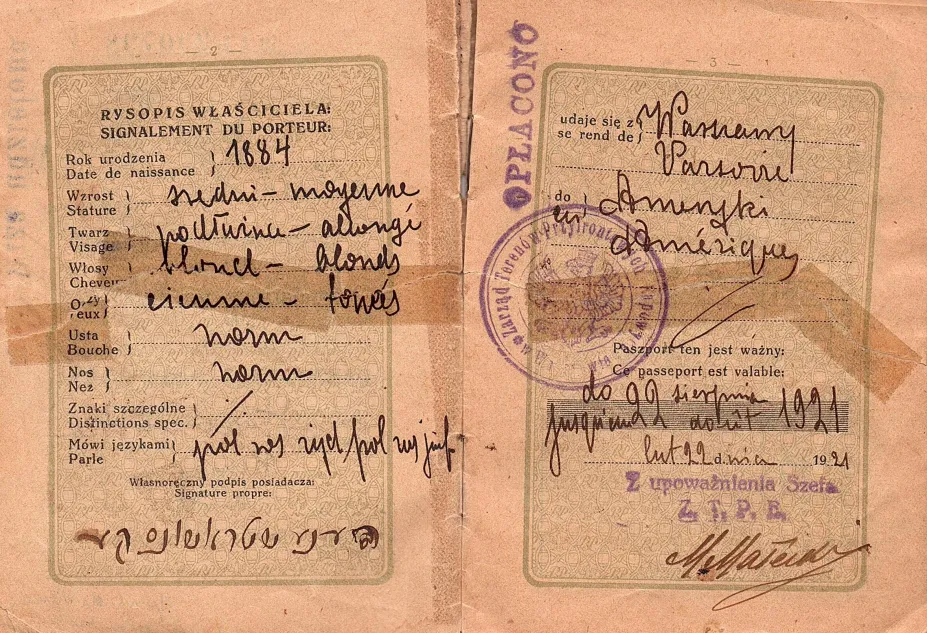 2
RYSOPIS WŁAŚCICIELA:
SIGNALEMENT DU PORTEUR:
Rok urodzenia
Date de naissance
1884
Wzrost
Stature
średni - moyenne
Twarz
Visage
allongé
Włosy
Cheveux
blond - blonds
Oczy
Yeux
ciemne -
Usta
Bouche
norm
Nos
Nez
norm
Znaki szczególne
Distinctions spec.
Mówi językami
Parle
pol ros żyd/pol rus juif
Własnoręczny podpis posiadacza:
Signature propre:
OPŁACONO
3
udaje się z
se rend de
Warszawy
Varsovie
do
en
Ameryki
Amérique
Zarząd Terenów Przyfrontowych
Paszport ten jest ważny:
Ce passeport est valable:
do 22 sierpnia
jusqu'au 22 août 1921
lut 22 dnia 1921
Z upoważnienia Szefa
Z. T. P. E.